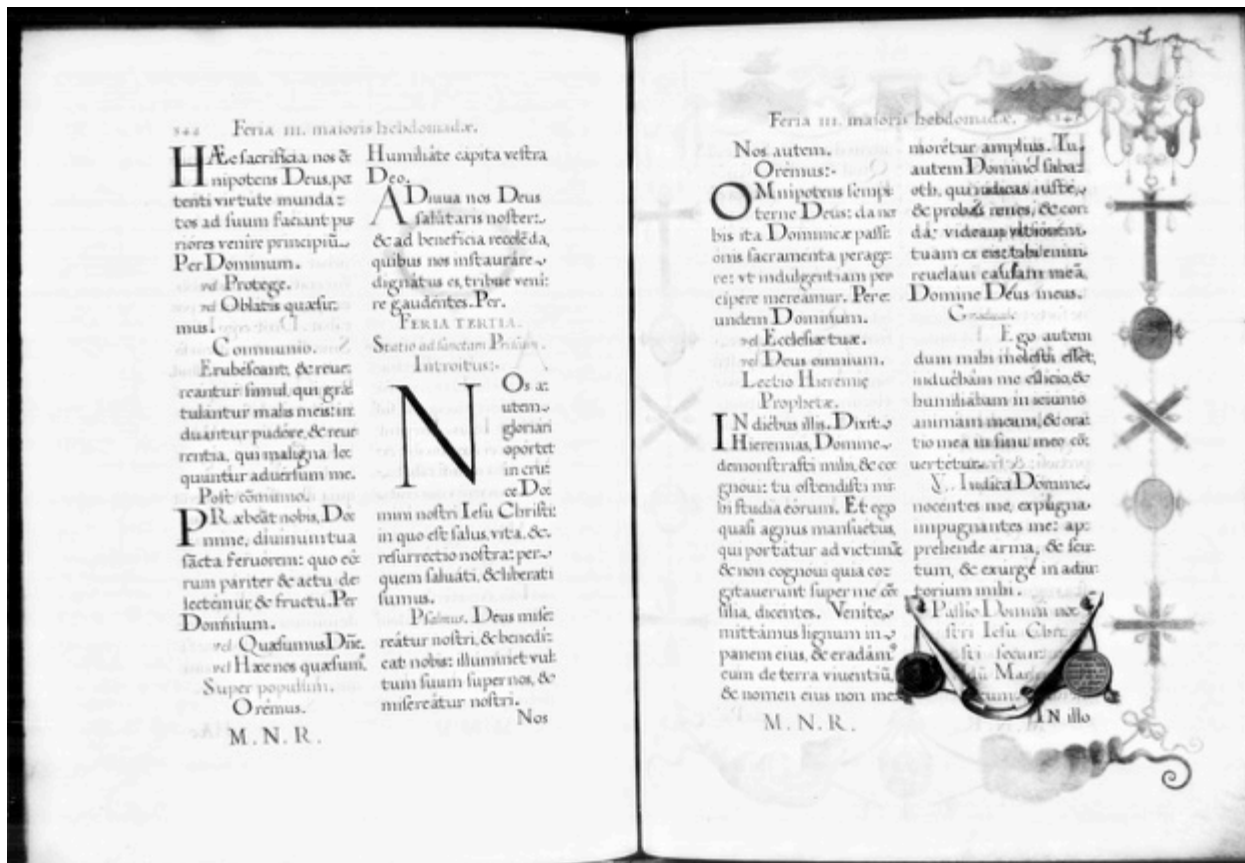 Feria III. maioris hebdomadæ.
HÆc sacrificia nos ō
nipotens Deus, po
tenti virtute munda-
tos ad suum faciant pu
riores venire principiū.
Per Dominum.
vel Protege.
vel Oblatis quæsu-
mus.
Communio.
Erubéscant, & reue-
reantur simul, qui grā
tulantur malis meis: in
duantur pudóre, & reue
rentia, qui maligna lo-
quuntur aduersum me.
Post cōmunio.
PRæbeāt nobis, Do-
mine, diuinum tua
sācta feruorem: quo eó-
rum páriter & actu de-
lectémur, & fructu. Per
Dominum.
vel Quæsumus Dñe.
vel Hæc nos quæsum'.
Super populum.
Orémus.
M. N. R.
Humiliáte cápita vestra
Deo.
ADiuua nos Deus
salutáris noster:
& ad beneficia recolēda,
quibus nos instauráre
dignátus es, tribue veni-
re gaudentes. Per.
FERIA TERTIA.
Statio ad sanctam Priscam.
Introitus:-
NOs a-
utem
gloriari
oportet
in cru-
ce Do-
mini nostri Iesu Christi:
in quo est salus, vita, &
resurrectio nostra: per
quem saluáti, & liberati
sumus.
Psalmus. Deus mise-
reátur nostri, & benedi-
cat nobis: illuminet vul-
tum suum super nos, &
misereátur nostri.
Nos
Feria III. maioris hebdomadæ.
Nos autem.
Orémus:-
OMnipotens sempi
terne Deus: da no
bis ita Dominicæ passi-
onis sacramenta perage-
re: vt indulgentiam per
cipere mereámur. Per e-
undem Dominum.
vel Ecclesiæ tuæ.
vel Deus omnium.
Lectio Hieremię
Prophetæ.
IN diébus illis. Dixit
Hieremias. Domine
demonstrasti mihi, & co-
gnoui: tu ostendisti mi-
hi studia eórum. Et ego
quasi agnus mansuetus,
qui portátur ad victimā:
& non cognoui quia co-
gitauerunt super me cō-
silia, dicentes. Venite,
mittámus lignum in
panem eius, & eradám'
eum de terra viuentiū,
& nomen eius non me-
M. N. R.
morétur amplius. Tu
autem Domine saba-
oth, qui iudicas iuste,
& probas renes, & cor-
da: videam vltionem
tuam ex eis: tibi enim
reuelaui causam meā,
Domine Deus meus.
Graduale.
Ego autem
dum mihi molesti essēt,
induébam me cilicio, &
humiliábam in ieiunio
animam meam, & orat-
tio mea in sinu meo cō-
uertetur.
℣. Iudica Domine
nocentes me, expugna
impugnantes me: ap-
prehende arma, & scu-
tum, & exurge in adiu-
torium mihi.
Passio Domini no-
stri Iesu Chri-
sti secun-
dū Mar
cum.
IN illo